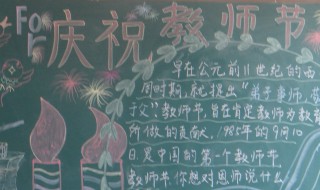 For
庆祝教师节
早在公元前11世纪的西
周时期,就提出"弟子事师,敬
于父"教师节,旨在肯定教师为教育
所做的贡献,1985年的9月10
日,是中国的第一个教师节,
教师节,你想对恩师说什么